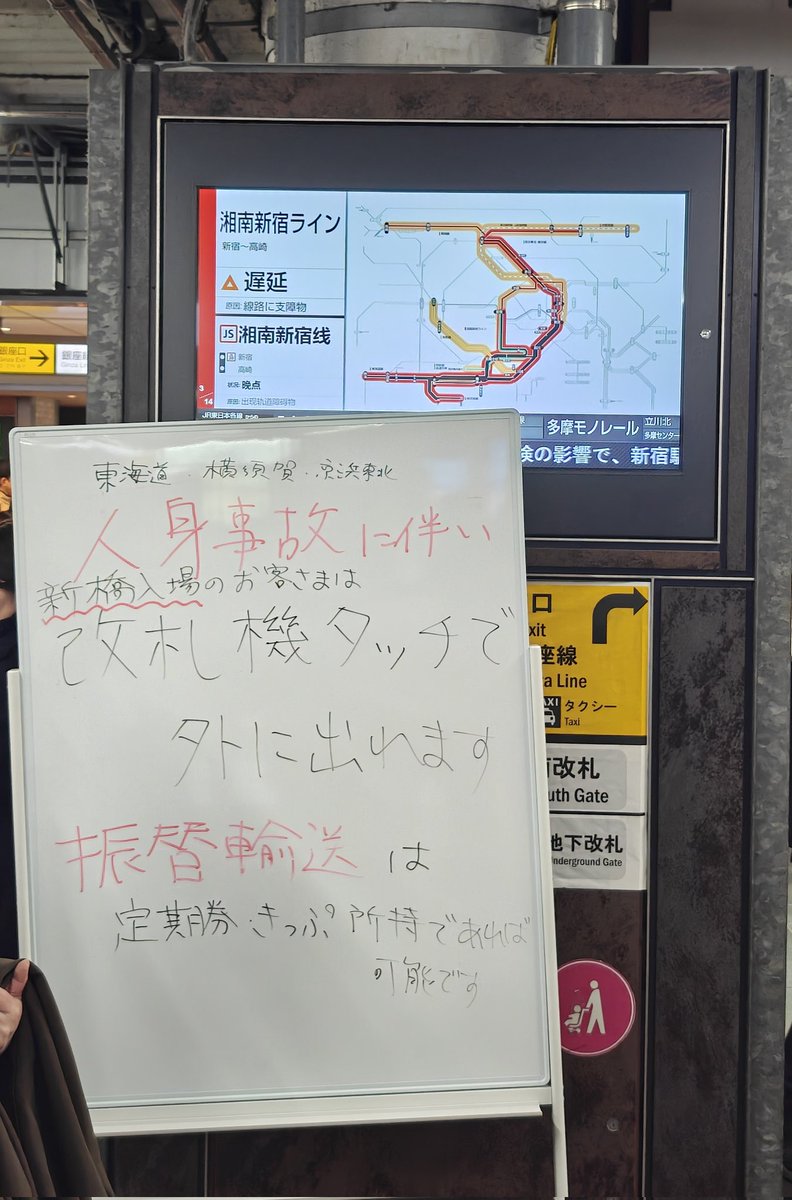 湘南新宿ライン
新宿～高崎
遅延
原因:線路に支障物
JS 湘南新宿线
新宿
高崎
状况:晚点
原因:出现轨道障碍物
3/14
JR東日本各線
多摩モノレール
立川北
多摩センター
検の影響で、新宿駅
銀座口
Ginza Exit
銀座線
Ginza Line
東海道・横須賀・京浜東北
人身事故に伴い
新橋入場のお客さまは
改札機タッチで
外に出れます
振替輸送は
定期勝・きっぷ所持であれば
可能です
口
xit
座線
za Line
TAXI タクシー
Taxi
改札
uth Gate
地下改札
nderground Gate